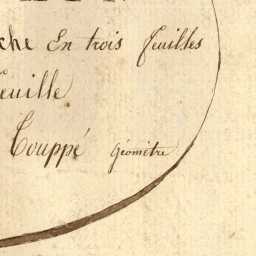 che En trois feuilles
feuille
Couppé géomètre